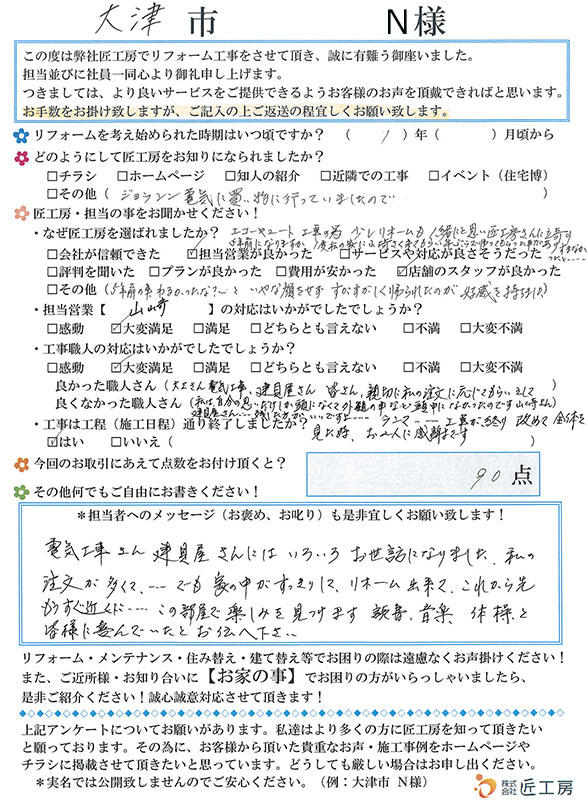 大津 市 N様
この度は弊社匠工房でリフォーム工事をさせて頂き、誠に有難う御座いました。
担当並びに社員一同心より御礼申し上げます。
つきましては、より良いサービスをご提供できるようお客様のお声を頂戴できればと思います。
お手数をお掛け致しますが、ご記入の上ご返送の程宜しくお願い致します。
リフォームを考え始められた時期はいつ頃ですか？ （ 1 ）年（ ）月頃から
どのようにして匠工房をお知りになられましたか？
□チラシ □ホームページ □知人の紹介 □近隣での工事 □イベント（住宅博）
□その他（ ジョーシン電気に買い物に行っていましたので ）
匠工房・担当の事をお聞かせください！
・なぜ匠工房を選ばれましたか？ エコーキュート工事の為 少しリホームも
□会社が信頼できた ☑担当営業が良かった □サービスや対応が良さそうだった
□評判を聞いた □プランが良かった □費用が安かった ☑店舗のスタッフが良かった
□その他（
・担当営業【 山崎 】の対応はいかがでしたでしょうか？
□感動 ☑大変満足 □満足 □どちらとも言えない □不満 □大変不満
・工事職人の対応はいかがでしたでしょうか？
□感動 ☑大変満足 □満足 □どちらとも言えない □不満 □大変不満
良かった職人さん（大工さん電気工事、建具屋さん 皆さん、親切に私の注文に応じてもらいまして
良くなかった職人さん（
・工事は工程（施工日程）通り終了しましたか？
☑はい □いいえ（ ）
今回のお取引にあえて点数をお付け頂くと？ 90 点
その他何でもご自由にお書きください！
＊担当者へのメッセージ（お褒め、お叱り）も是非宜しくお願い致します！
電気工事さん 建具屋さんにはいろいろお世話になりました、私の
注文が多くて、---- でも家の中がすっきりして、リホーム出来て、これから先
もうすぐ近くに---- この部屋で楽しみを見つけます 読書、音楽 体操、と
皆様に喜んでいたとお伝へ下さい
リフォーム・メンテナンス・住み替え・建て替え等でお困りの際は遠慮なくお声掛けください！
また、ご近所様・お知り合いに【お家の事】でお困りの方がいらっしゃいましたら、
是非ご紹介ください！誠心誠意対応させて頂きます！
上記アンケートについてお願いがあります。私達はより多くの方に匠工房を知って頂きたい
と願っております。その為に、お客様から頂いた貴重なお声・施工事例をホームページや
チラシに掲載させて頂きたいと思っています。どうしても厳しい場合はお申し出ください。
＊実名では公開致しませんのでご安心ください。（例：大津市 N様） 株式会社 匠工房